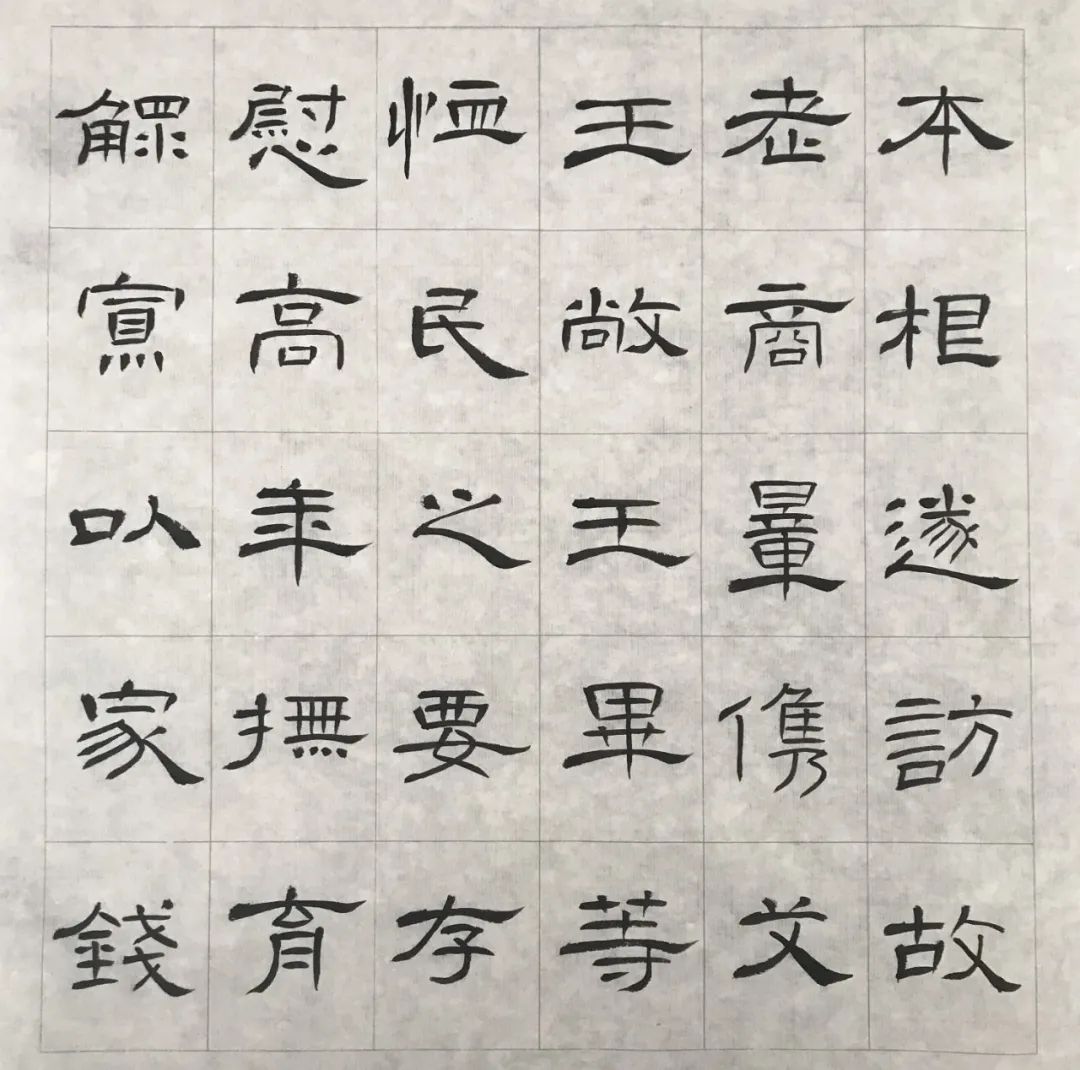 本相遂訪故
老商量儁艾
王敞王畢等
恤民之要存
慰高年撫育
鰥寡以家錢